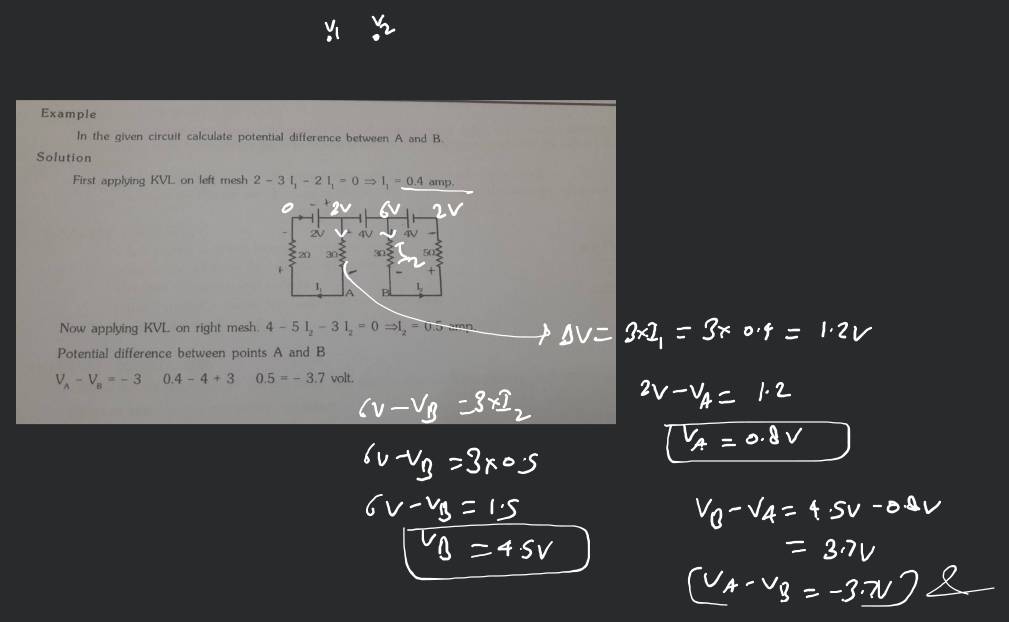 V1 V2
Example
In the given circuit calculate potential difference between A and B.
Solution
First applying KVL on left mesh 2 – 3 I₁ – 2 I₁ = 0 ⇒ I₁ = 0.4 amp.
0 - + 2V 6V 2V
- 2V - 4V 4V -
2Ω 3Ω 3Ω I2 5Ω
+ - - +
I₁ A B I₂
Now applying KVL on right mesh. 4 – 5 I₂ – 3 I₂ = 0 ⇒I₂ = 0.5 amp.
ΔV = 3×I₁ = 3× 0.4 = 1.2V
Potential difference between points A and B
V_A – V_B = – 3 0.4 – 4 + 3 0.5 = – 3.7 volt.
2V – V_A = 1.2
6V – V_B = 3×I₂
V_A = 0.8V
6V – V_B = 3×0.5
6V – V_B = 1.5
V_B – V_A = 4.5V – 0.8V
V_B = 4.5V
= 3.7V
(V_A – V_B = –3.7V)